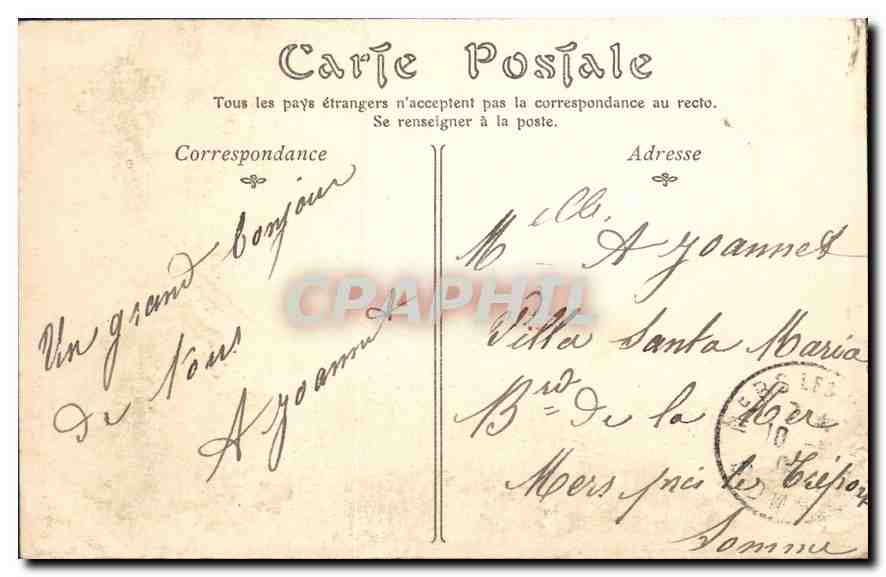 Carte Postale
Tous les pays étrangers n'acceptent pas la correspondance au recto.
Se renseigner à la poste.
Correspondance
Un grand bonjour
de Nous
A Joannet
Adresse
Melle A Joannet
Villa Santa Maria
Brd de la Mer
Mers près le Tréport
Somme
MERS LES
10
CPAPHIL